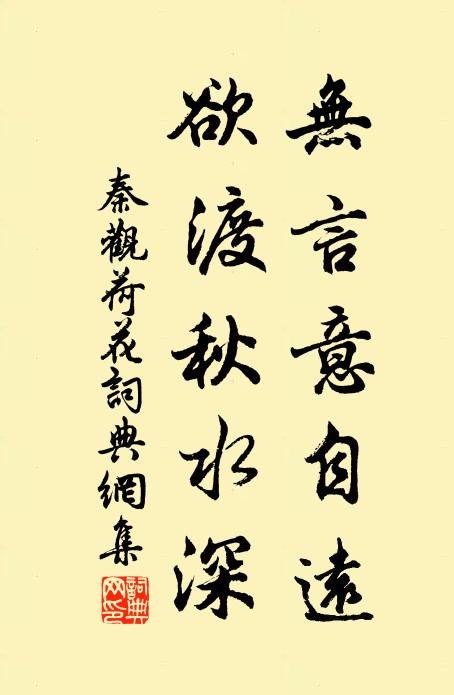 無言意自遠
欲渡秋水深
秦觀荷花詞典網集
詞典网印